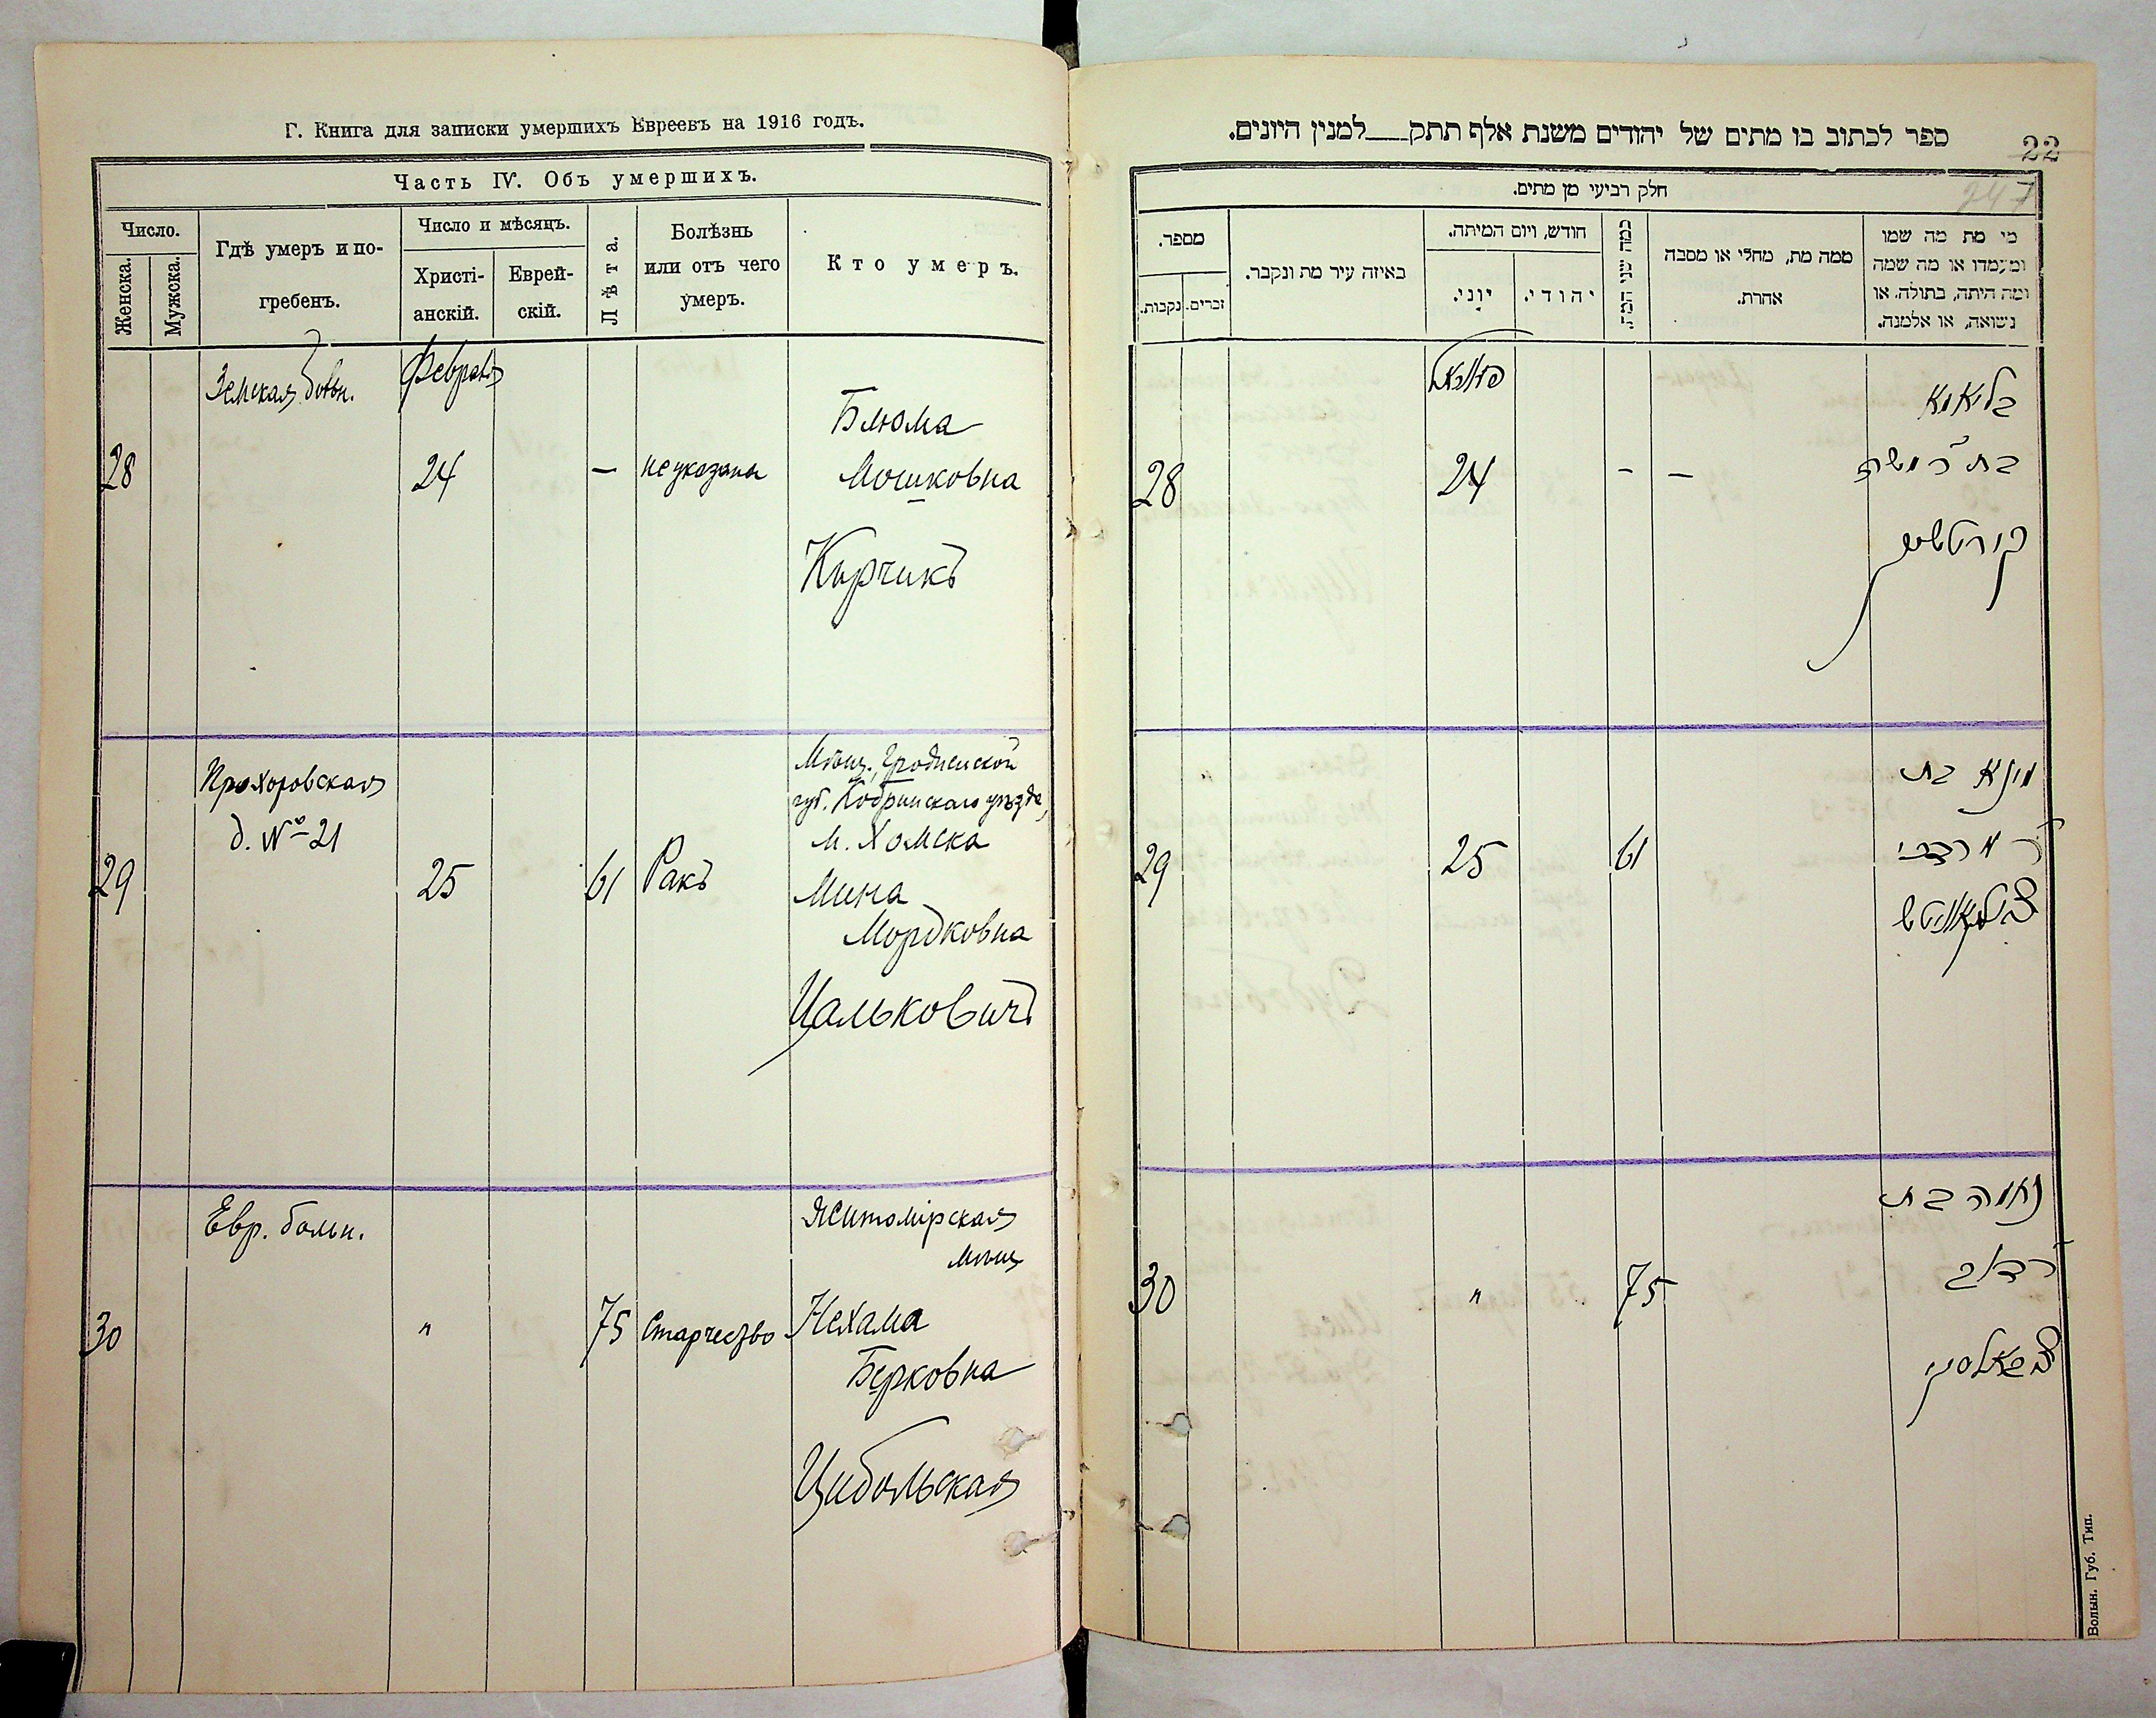 Г. Книга для записки умершихъ Евреевъ на 1916 годъ.
Часть IV. Объ умершихъ.
Число.
Женска.
Мужска.
Гдѣ умеръ и по-
гребенъ.
Число и мѣсяцъ.
Христі-
анскій.
Еврей-
скій.
Лѣта.
Болѣзнь
или отъ чего
умеръ.
Кто умеръ.
Земская больн.
Февраля
28
24
—
не указана
Блюма
Мошковна
Курчикъ
Прохоровская
д. № 21
29
25
61
Ракъ
Мѣщ., Гродненской
губ. Кобринскаго уѣзда,
м. Хомска
Мина
Мордковна
Цальковичъ
Евр. больн.
30
"
75
Старчество
Житомірская
мѣщ.
Нехама
Берковна
Цибольская
ספר לכתוב בו מתים של יהודים משנת אלף תתק___למנין היונים.
22
247
חלק רביעי מן מתים.
מספר.
נקבות.
זכרים.
באיזה עיר מת ונקבר.
חודש, ויום המיתה.
יוני.
יהודי.
כמה שני המת.
ממה מת, מחלי או מסבה
אהרת.
מי מת מה שמו
ומעמדו או מה שמה
ומה היתה, בתולה, או
נשואה, או אלמנה.
28
24
-
—
בליומא
בת ר' משה
קורטשיק
29
25
61
מינא בת
ר' מרדכי
צאלקאוויטש
30
"
75
נחמה בת
ר' דוב
Волын. Губ. Тип.